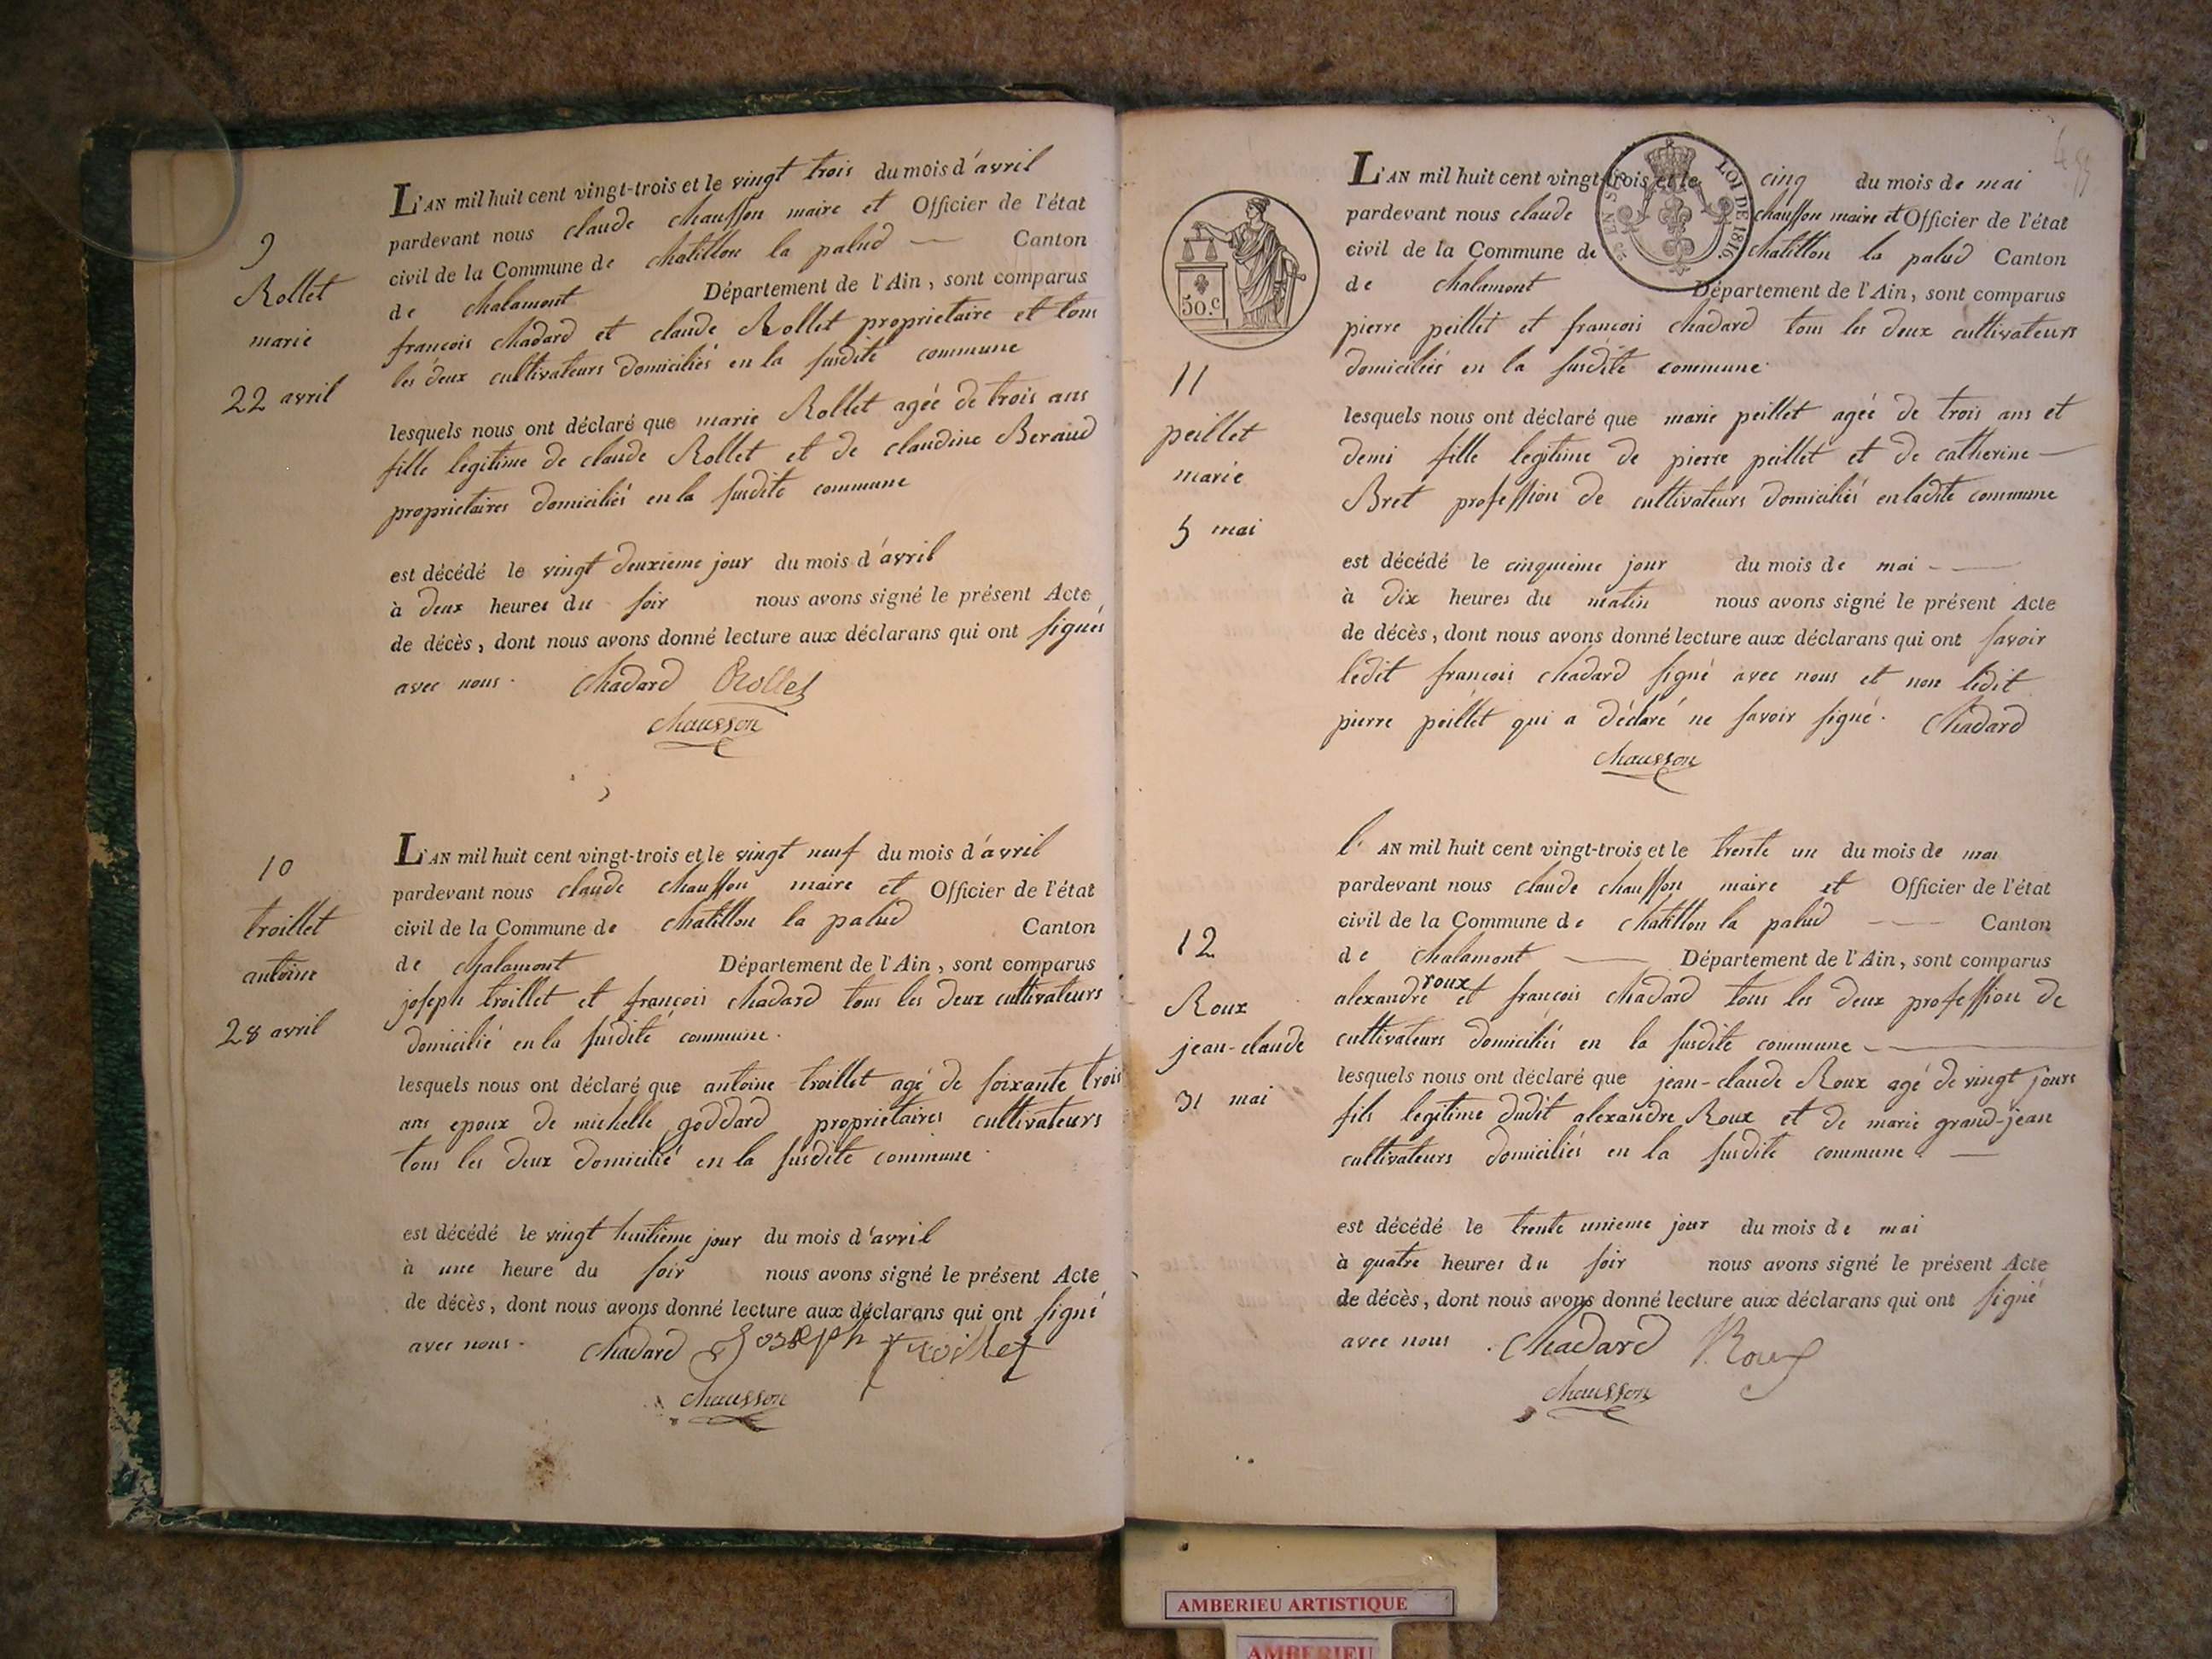 9
Rollet
marie
22 avril
L'AN mil huit cent vingt-trois et le vingt trois du mois d'avril
pardevant nous claude chausson maire et Officier de l'état
civil de la Commune de chatillon la palud — Canton
de chalamont Département de l'Ain, sont comparus
francois chadard et claude Rollet proprietaire et tous
les deux cultivateurs domiciliés en la susdite commune
lesquels nous ont déclaré que marie Rollet agée de trois ans
fille legitime de claude Rollet et de claudine Beraud
proprietaires domiciliés en la susdite commune
est décédé le vingt deuxieme jour du mois d'avril
à deux heures du soir nous avons signé le présent Acte
de décès, dont nous avons donné lecture aux déclarans qui ont signés
avec nous. chadard Rollet
chausson
10
troillet
antoine
28 avril
L'AN mil huit cent vingt-trois et le vingt neuf du mois d'avril
pardevant nous claude chausson maire et Officier de l'état
civil de la Commune de chatillon la palud Canton
de chalamont Département de l'Ain, sont comparus
joseph troillet et francois chadard tous les deux cultivateurs
domicilié en la susdite commune.
lesquels nous ont déclaré que antoine troillet agé de soixante trois
ans epoux de michelle goddard proprietaires cultivateurs
tous les deux domicilié en la susdite commune.
est décédé le vingt huitieme jour du mois d'avril
à une heure du soir nous avons signé le présent Acte
de décès, dont nous avons donné lecture aux déclarans qui ont signé
avec nous. chadard Joseph troillet
chausson
50.c
LOI DE 1816
11
peillet
marie
5 mai
L'AN mil huit cent vingt-trois et le cinq du mois de mai
pardevant nous claude chausson maire et Officier de l'état
civil de la Commune de chatillon la palud Canton
de chalamont Département de l'Ain, sont comparus
pierre peillet et francois chadard tous les deux cultivateurs
domiciliés en la susdite commune.
lesquels nous ont déclaré que marie peillet agée de trois ans et
demi fille legitime de pierre peillet et de catherine —
Bret profession de cultivateurs domiciliés en ladite commune
est décédé le cinquieme jour du mois de mai —
à dix heures du matin nous avons signé le présent Acte
de décès, dont nous avons donné lecture aux déclarans qui ont savoir
ledit francois chadard signé avec nous et non ledit
pierre peillet qui a déclaré ne savoir signé. chadard
chausson
12
Roux
jean-claude
31 mai
l'AN mil huit cent vingt-trois et le trente un du mois de mai
pardevant nous claude chausson maire et Officier de l'état
civil de la Commune de chatillon la palud — Canton
de chalamont — Département de l'Ain, sont comparus
alexandre roux et francois chadard tous les deux profession de
cultivateurs domiciliés en la susdite commune —
lesquels nous ont déclaré que jean-claude Roux agé de vingt jours
fils legitime dudit alexandre Roux et de marie grand-jean
cultivateurs domiciliés en la susdite commune. —
est décédé le trente unieme jour du mois de mai
à quatre heures du soir nous avons signé le présent Acte
de décès, dont nous avons donné lecture aux déclarans qui ont signé
avec nous. chadard Roux
chausson
AMBERIEU ARTISTIQUE
AMBERIEU